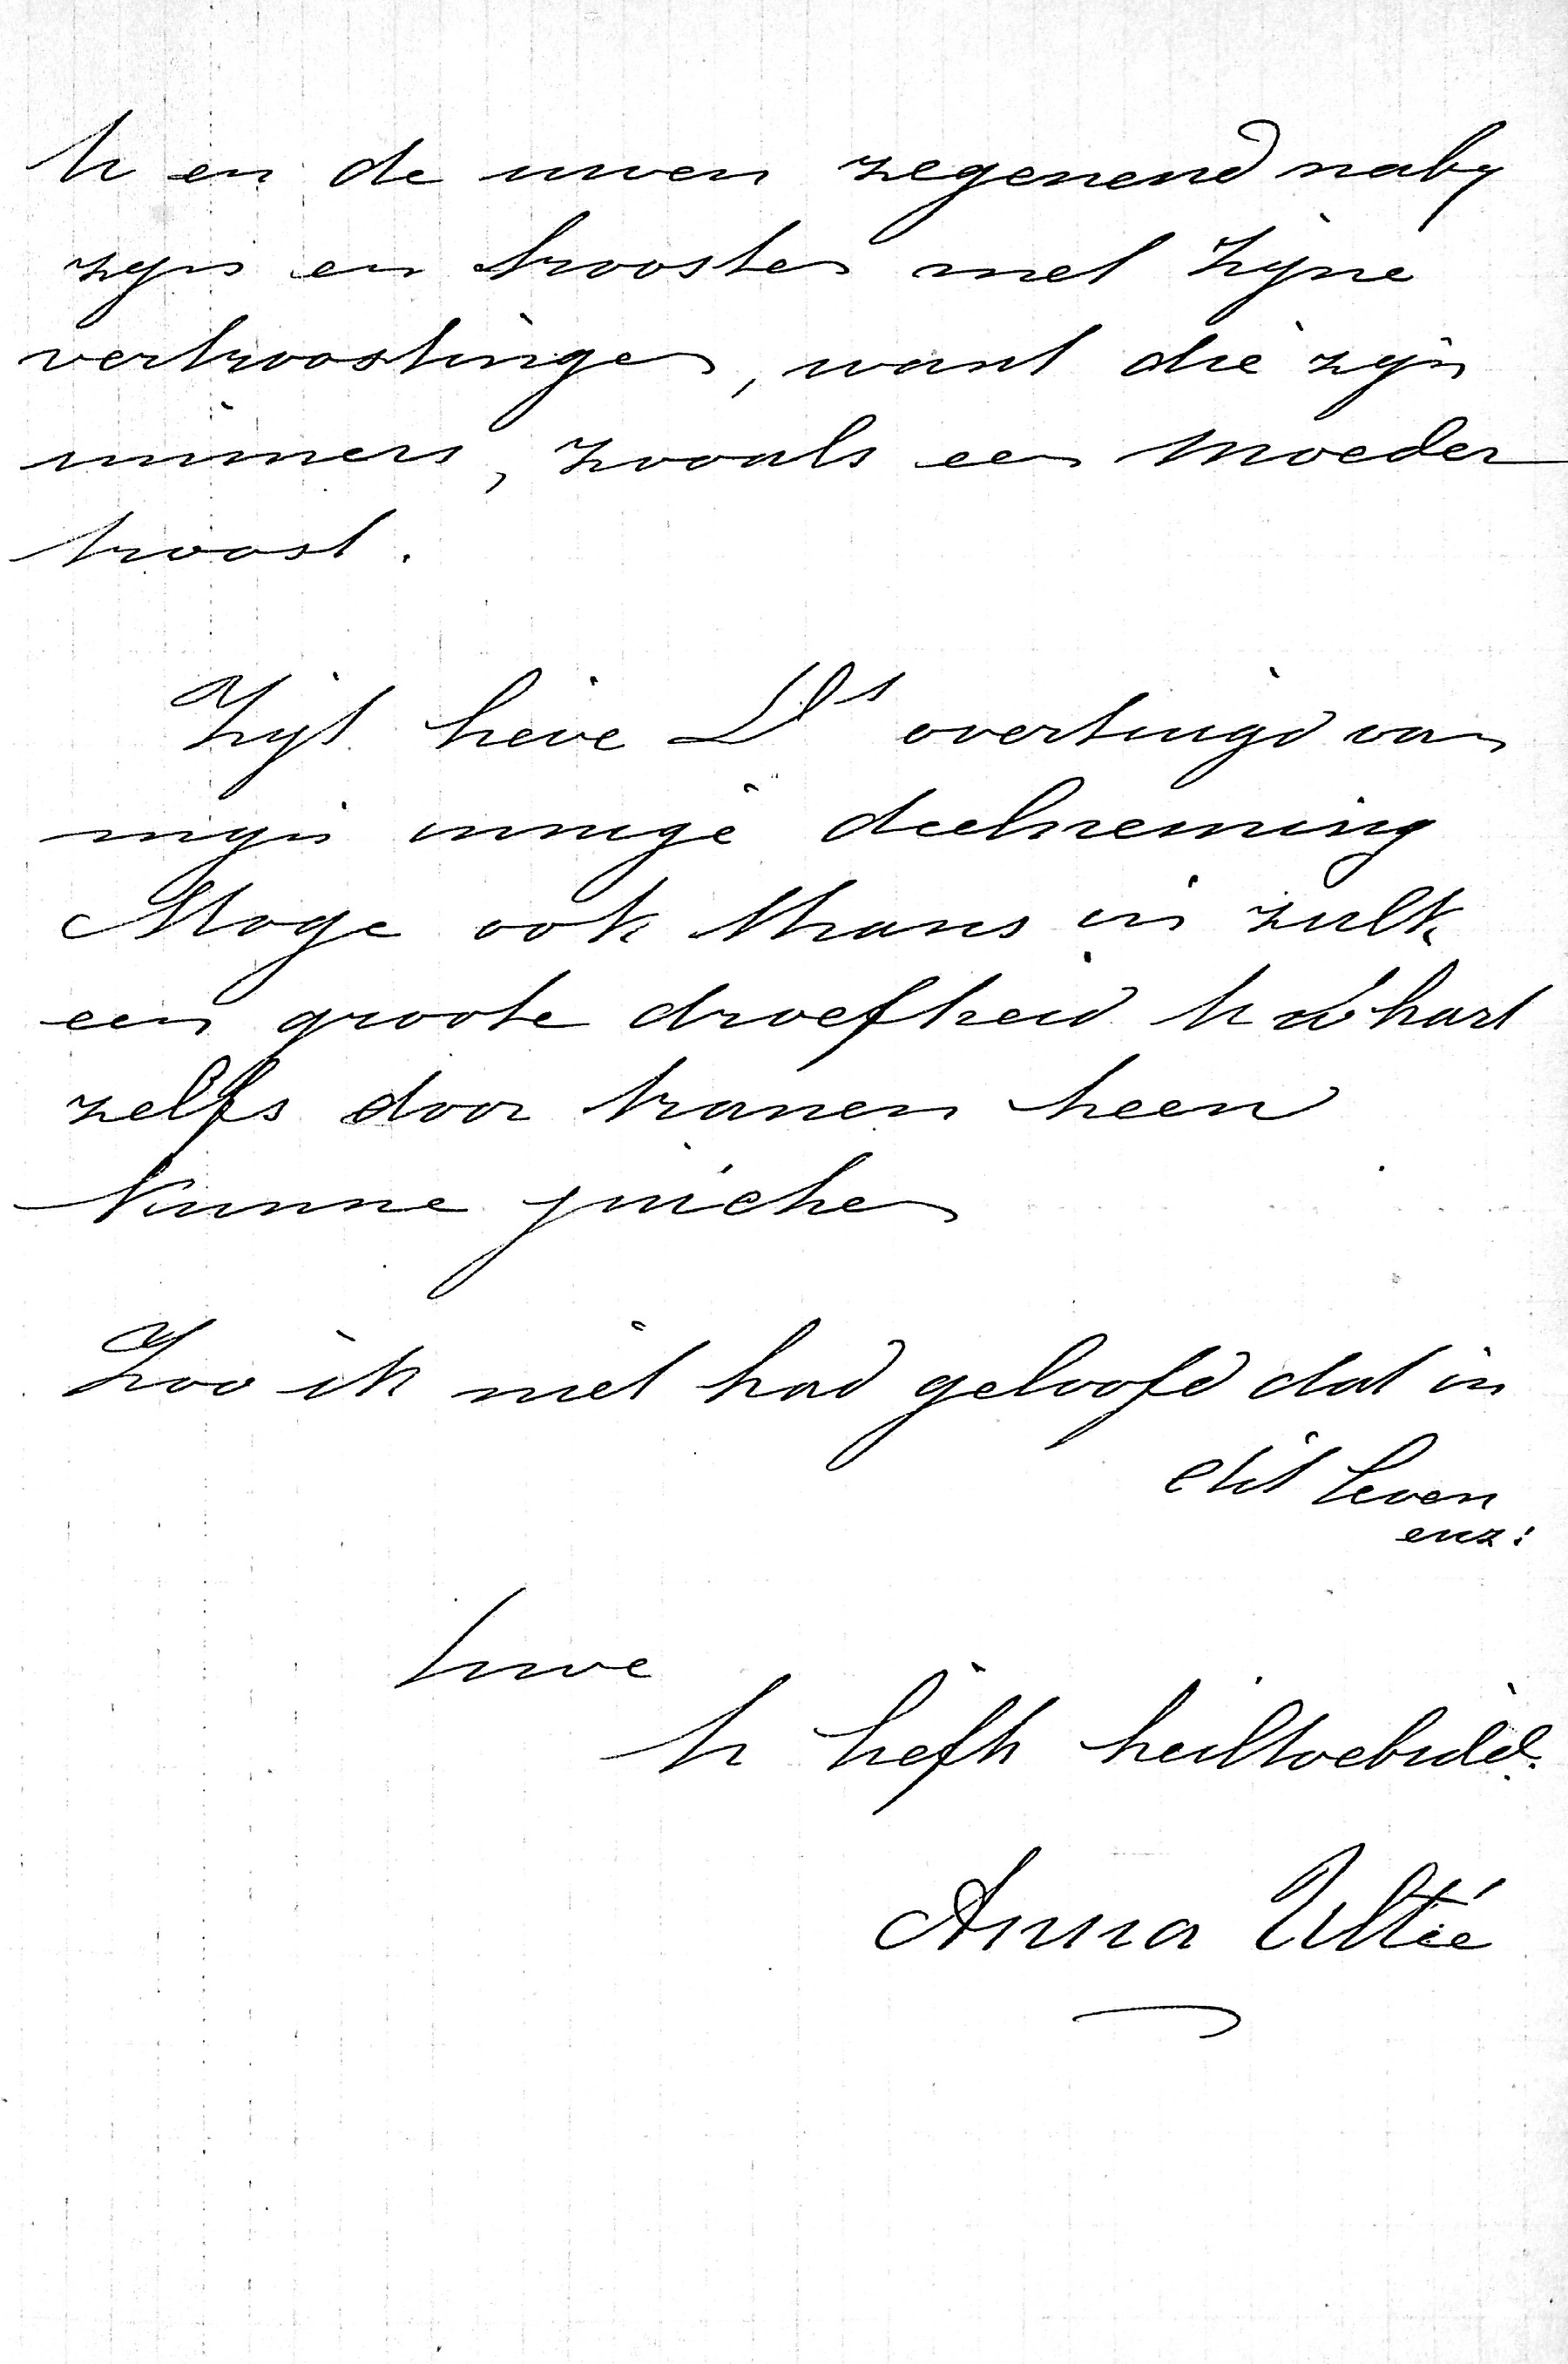 U en de uwen zegenend naby
zijn en troosten met Zijne
vertroostingen, want die zijn
immers, zooals een Moeder
troost.
Zijt lieve Ds overtuigd van
mijn innige deelneming
Moge ook thans in zulk
een groote droefheid Uw hart
zelfs door tranen heen
kunne juichen
Zoo ik niet had geloofd dat in
dit leven
enz:
Uwe
U liefh heiltoebidd.
Anna Ultée